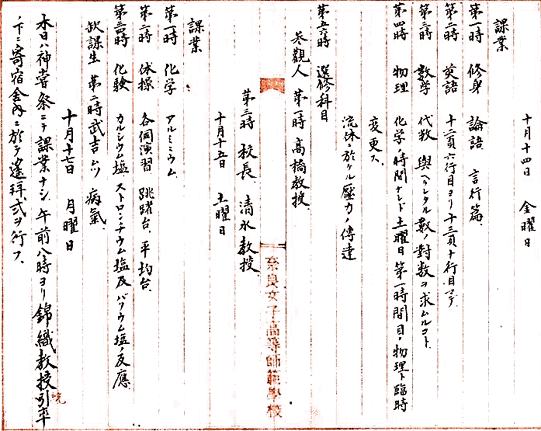 十月十四日 金曜日
課業
第一時 修身 論語 言行篇
第二時 英語 十二頁六行目ヨリ十三頁十行目マデ
第三時 数学 代数 與ヘラレタル数ノ對数ヲ求ムルコト
第四時 物理 化学ノ時間ナレド土曜日第一時間目ノ物理ト臨時
変更ス
流体ニ於ケル壓力ノ傳達
第五六時 選修科目
参観人 第一時 高橋教授
第三時 校長、清水教授
十月十五日 土曜日
課業
第一時 化学 アルミニウム
第二時 体操 各個演習 跳躍台、平均台
第三四時 化験 カルシウム塩 ストロンチウム塩及バリウム塩ノ反應
欠課生 第二時 武吉ムツ 病氣
十月十七日 月曜日
本日ハ神嘗祭ニテ課業ナシ 午前八時ヨリ錦織教授引率
ノ下ニ寄宿舎内ニ於テ遙拝式ヲ行フ
奈良女子高等師範學校